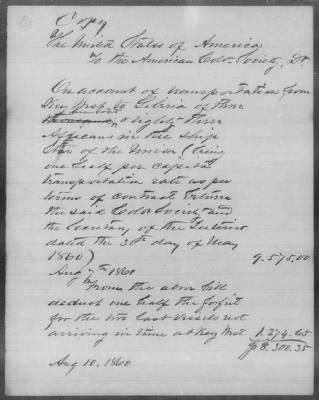 Copy
The United States of America
To the American Colo. Society, Dr.
On account of transportation from
Key West to Liberia of three
hundred & eighty three
Africans in the Ship
Star of the Union (being
one half per capita
transportation rate as per
terms of contract between
the said Colo. Society and
the Secretary of the Interior
dated the 30th day of May
1860) 9.575.00
Aug 7th 1860
From the above bill
deduct one half the forfeit
for the two last vessels not
arriving in time at Key West 1.274.65
$8.300.35
Aug 10, 1860